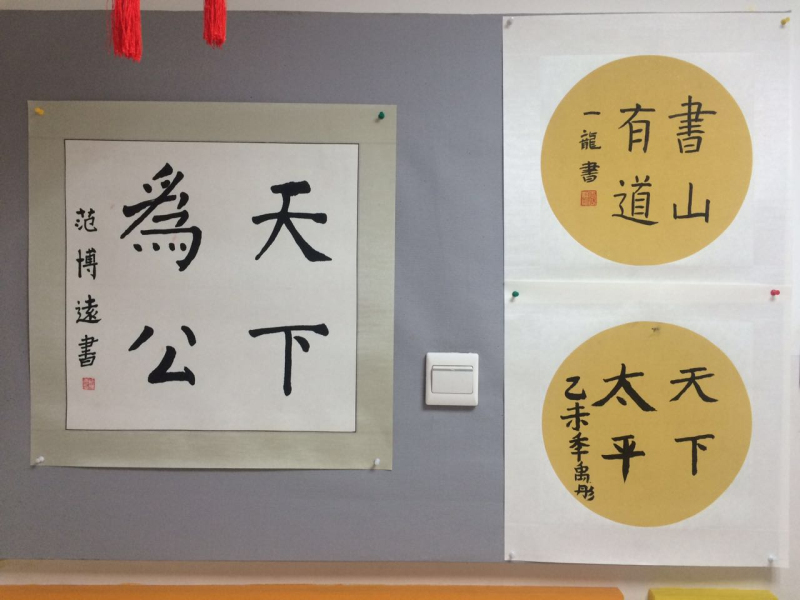 天下
為公
范博遠書
書山
有道
一龍書
天下
太平
乙未季禹彤